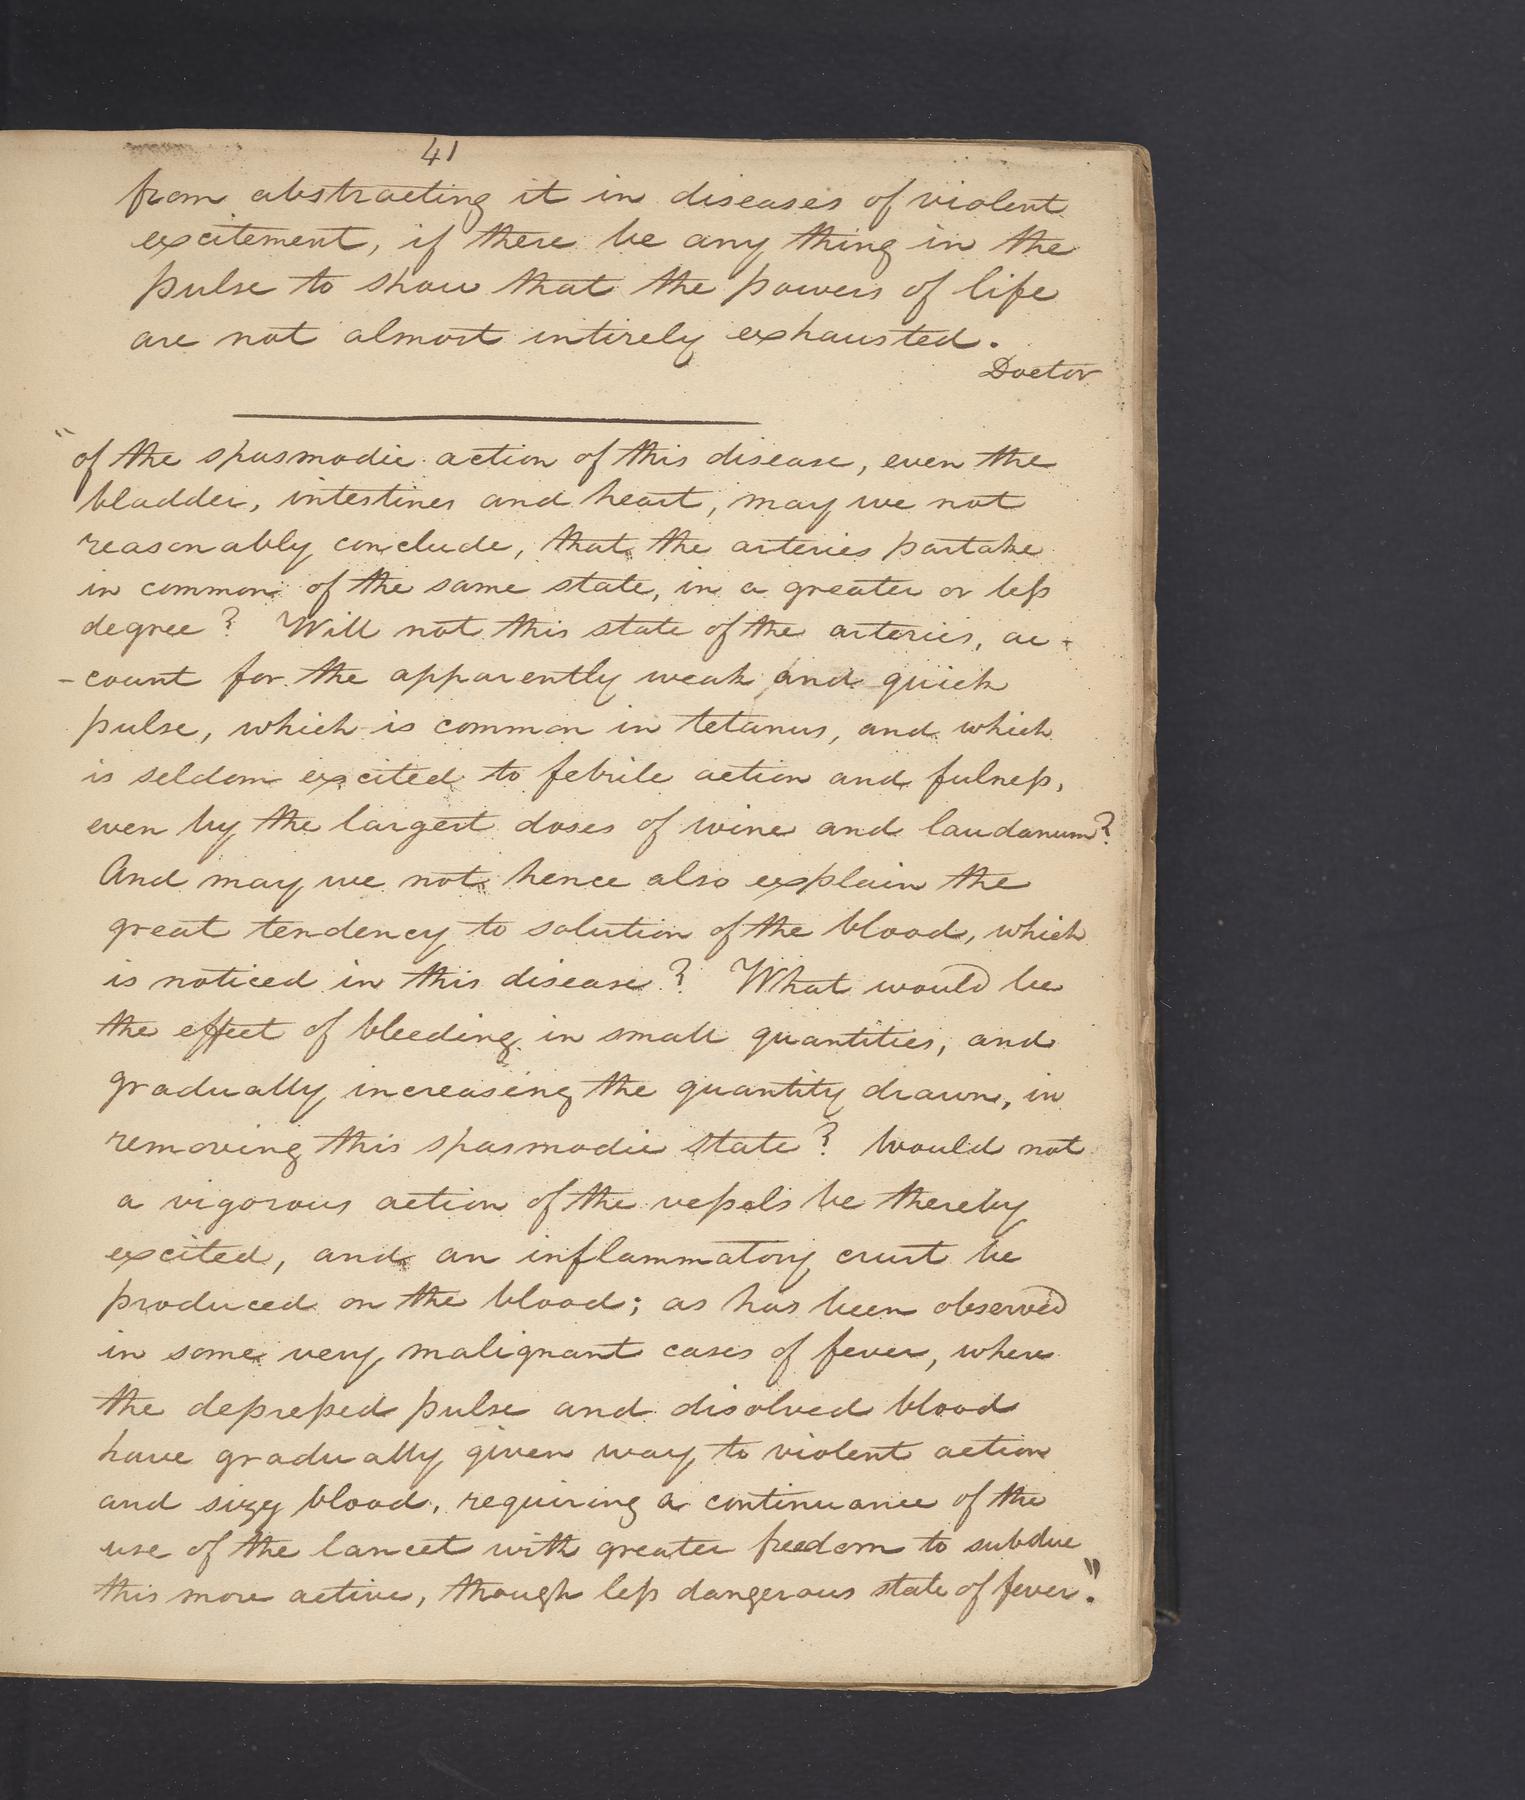 41
from abstracting it in diseases of violent
excitement, if there be any thing in the
pulse to show that the powers of life
are not almost intirely exhausted.
Doctor
"of the spasmodic action of this disease, even the
bladder, intestines and heart, may we not
reasonably conclude, that the arteries partake
in common of the same state, in a greater or less
degree? Will not this state of the arteries, ac-
-count for the apparently weak and quick
pulse, which is common in tetanus, and which
is seldom excited to febrile action and fulness,
even by the largest doses of wine and laudanum?
And may we not hence also explain the
great tendency to solution of the blood, which
is noticed in this disease? What would be
the effect of bleeding in small quantities, and
gradually increasing the quantity drawn, in
removing this spasmodic state? Would not
a vigorous action of the vessels be thereby
excited, and an inflammatory crust be
produced on the blood; as has been observed
in some very malignant cases of fever, where
the depressed pulse and disolved blood
have gradually given way to violent action
and sizy blood, requiring a continuance of the
use of the lancet with greater freedom to subdue
this more active, though less dangerous state of fever."